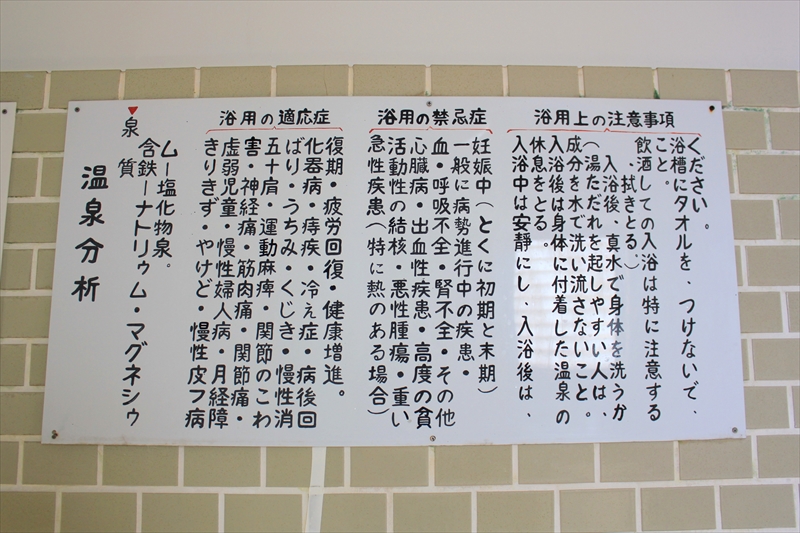 温泉分析
泉質
含鉄ーナトリゥム・マグネシゥ
ム一塩化物泉。
浴用の適応症
きりきず・やけど・慢性皮フ病
虚弱児童・慢性婦人病・月経障
害・神経痛・筋肉痛・関節痛・
五十肩・運動麻痺・関節のこわ
ばり・うちみ・くじき・慢性消
化器病・痔疾・冷え症・病後回
復期・疲労回復・健康増進。
浴用の禁忌症
急性疾患(特に熱のある場合)
活動性の結核・悪性腫瘍・重い
心臓病・出血性疾患・高度の貧
血・呼吸不全・腎不全・その他
一般に病勢進行中の疾患・
妊娠中(とくに初期と末期)
浴用上の注意事項
入浴中は安靜にし、入浴後は、
休息をとる。
入浴後は身体に付着した温泉の
成分を水で洗い流さないこと。
(湯ただれを起しやすい人は、
入浴後、真水で身体を洗うか
、拭きとる。)
飲酒しての入浴は特に注意する
こと。
浴槽にタオルを、つけないで、
ください。